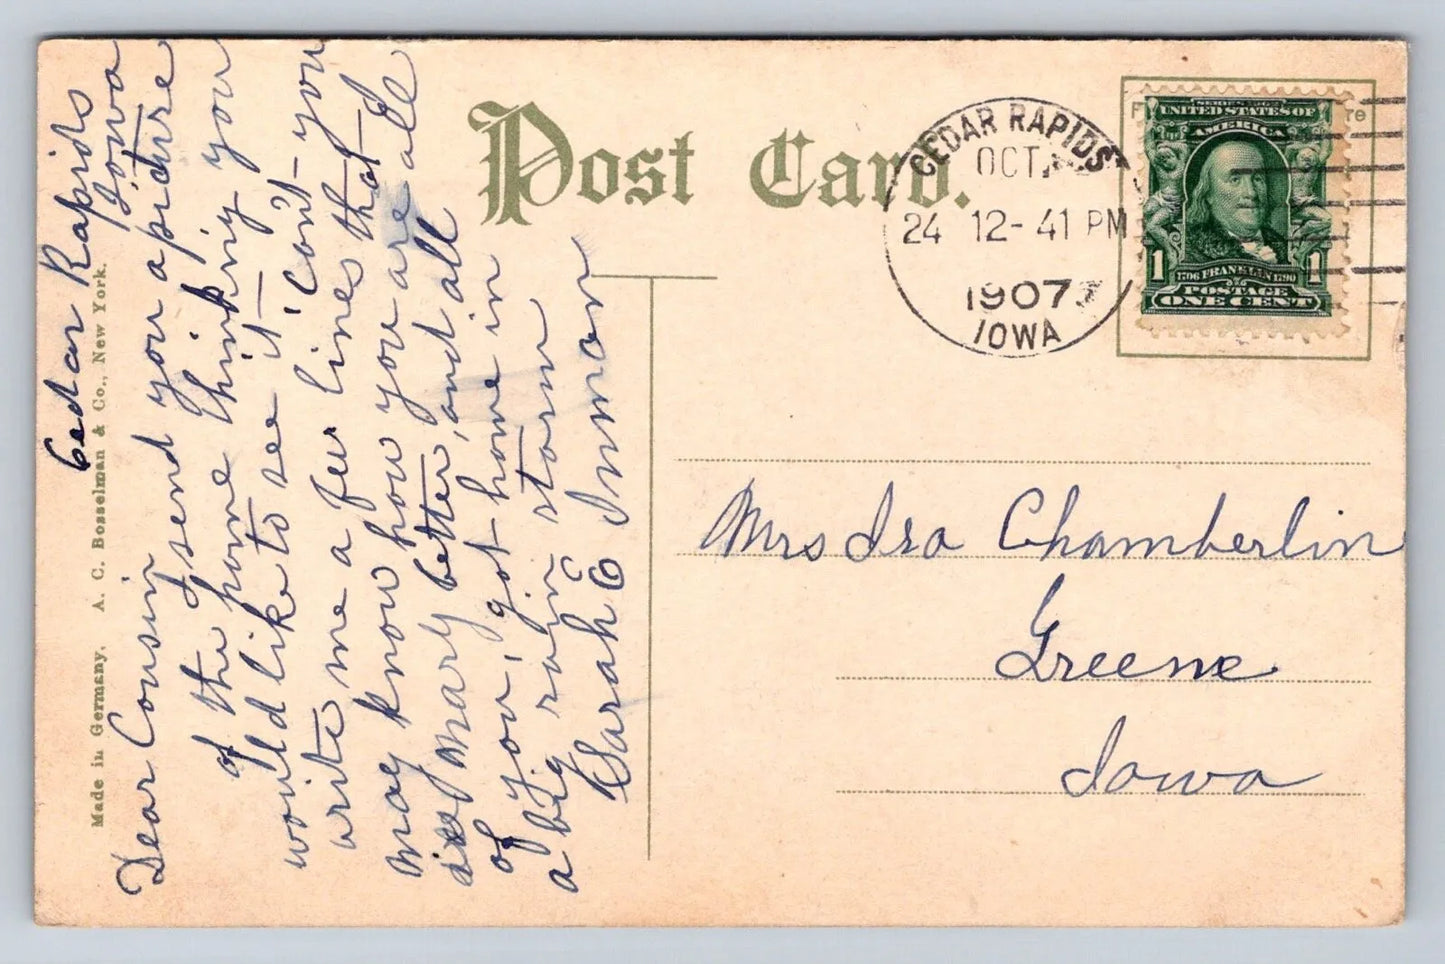 Post Card.
CEDAR RAPIDS
OCT
24 12-41 PM
1907
IOWA
SERIES 1902
UNITED STATES OF
AMERICA
1 1
1706 FRANKLIN 1790
POSTAGE
ONE CENT
re
Made in Germany. A. C. Bosselman & Co., New York.
Cedar Rapids
Iowa
Dear Cousin
I send you a picture
of the home thinking you
would like to see it—
write me a few lines, can't you
may know how you are that I
is Mary better, and all
of you, got home in all
a big rain storm
Sarah E Inman
Mrs Ira Chamberlin
Greene
Iowa